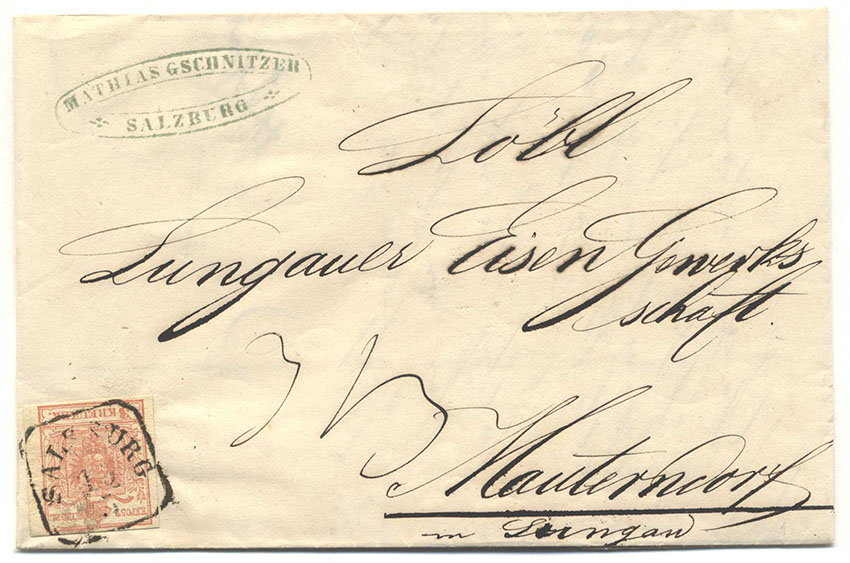 MATHIAS GSCHNITZER
SALZBURG
Löbl.
Lungauer Eisen Gewerks
schaft.
Mauterndorf
in Lungau
SALZBURG
KREUZER